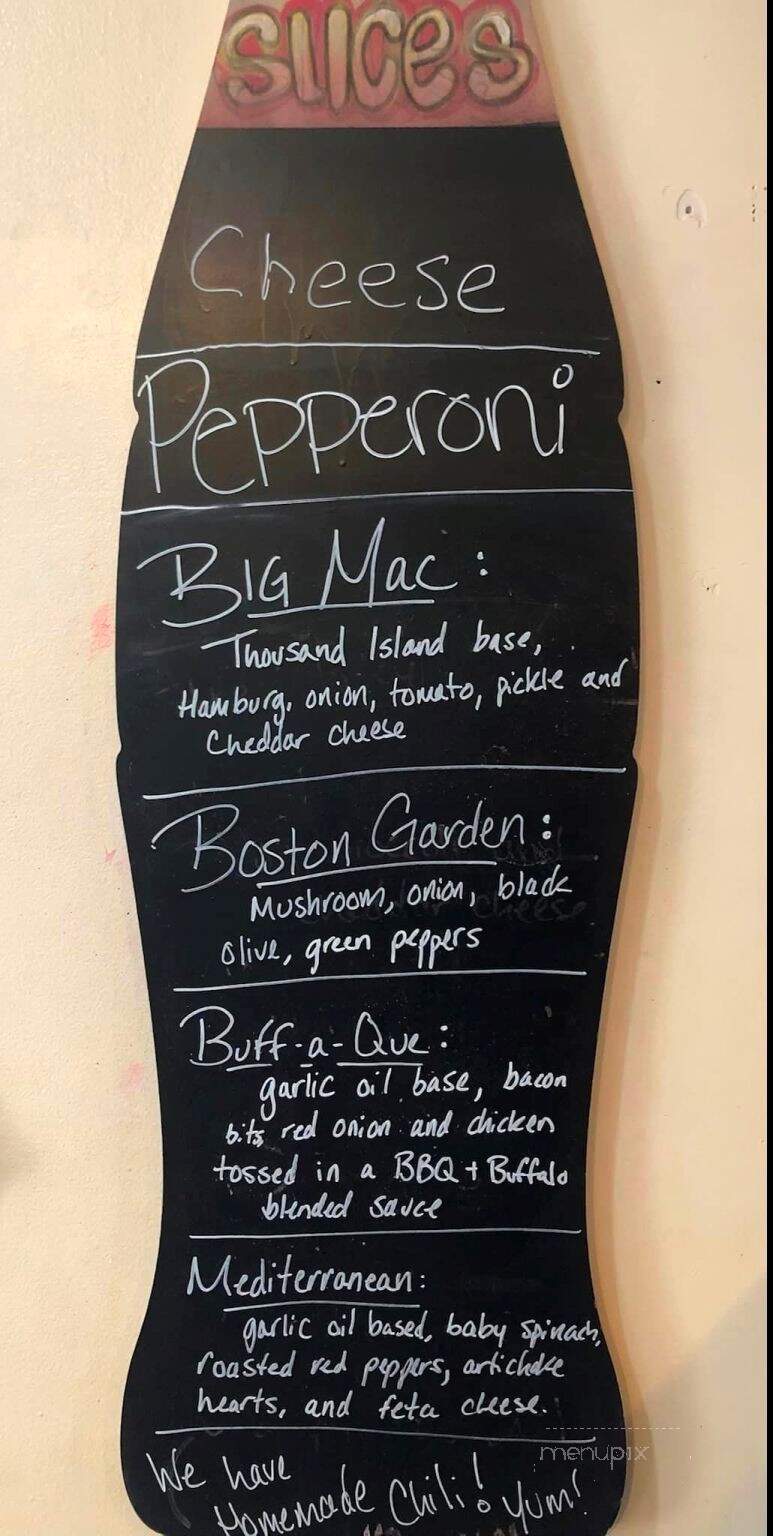 SLICES
Cheese
Pepperoni
Big Mac:
Thousand Island base,
Hamburg, onion, tomato, pickle and
Cheddar cheese
Boston Garden:
Mushroom, onion, black
olive, green peppers
Buff-a-Que:
garlic oil base, bacon
bits, red onion and chicken
tossed in a BBQ + Buffalo
blended sauce
Mediterranean:
garlic oil based, baby spinach,
roasted red peppers, artichoke
hearts, and feta cheese.
We have
Homemade Chili! Yum!
menupix